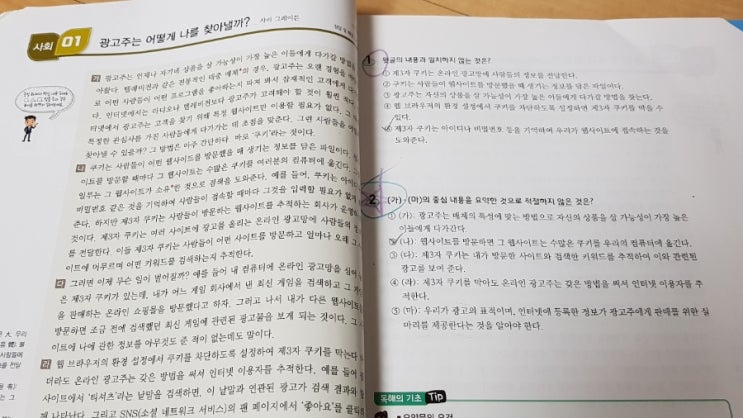 사회 01 광고주는 어떻게 나를 찾아낼까? 사라 그레이든
가 광고주는 언제나 자기네 상품을 살 가능성이 가장 높은 이들에게 다가갈
아왔다. 텔레비전과 같은 전통적인 대중 매체*의 경우, 광고주는 오랜 경험을
로 어떤 이들이 어떤 프로그램을 좋아하는지 따져 봐서 잠재적인 고객에게 다
다. 인터넷에서는 라디오나 텔레비전보다 광고주가 고려해야 할 것이 훨씬 적다.
터넷에서 광고주는 고객을 찾기 위해 특정 웹사이트만 이용할 필요가 없다. 그
특정한 관심사를 가진 사람들에게 다가가는 데 초점을 맞춘다. 그런 사람들을 어떻
찾아낼 수 있을까? 그 방법은 아주 간단하다. 바로 '쿠키'라는 것이다.
나 쿠키는 사람들이 어떤 웹사이트를 방문했을 때 생기는 정보를 담은 파일이다.
이트를 방문할 때마다 그 웹사이트는 수많은 쿠키를 여러분의 컴퓨터에 옮긴다. 그
일부는 그 웹사이트가 소유*한 것으로 검색을 도와준다. 예를 들어, 쿠키는 아이디
비밀번호 같은 것을 기억하여 사람들이 접속할 때마다 그것을 입력할 필요가 없게
준다. 하지만 제3자 쿠키는 사람들이 방문하는 웹사이트를 추적하는 회사가 운영
것이다. 제3자 쿠키는 여러 사이트에 광고를 올리는 온라인 광고망에 사람들의
를 전달한다. 이들 제3자 쿠키는 사람들이 어떤 사이트를 방문하고 얼마나 오래 그
이트에 머무르며 어떤 키워드를 검색하는지 추적한다.
다 그러면 이제 무슨 일이 벌어질까? 예를 들어 내 컴퓨터에 온라인 광고망을 심어
은 제3자 쿠키가 있는데, 내가 어느 게임 회사에서 낸 최신 게임을 검색하고 그
을 판매하는 온라인 쇼핑몰을 방문했다고 하자. 그러고 나서 내가 다른 웹사이트
방문하면 조금 전에 검색했던 최신 게임에 관련된 광고물을 보게 되는 것이다. 그
이트에 나에 관한 정보를 아무것도 준 적이 없는데도 말이다.
라 웹 브라우저의 환경 설정에서 쿠키를 차단하도록 설정하여 제3자 쿠키를 막는다
더라도 온라인 광고주는 갖은 방법을 써서 인터넷 이용자를 추적한다. 예를 들어
사이트에서 '티셔츠'라는 낱말을 검색하면, 이 낱말과 연관된 광고가 검색 결과와
게 나타난다. 그리고 SNS(소셜 네트워크 서비스)의 팬 페이지에서 '좋아요'를 클릭
1 윗글의 내용과 일치하지 않는 것은?
① 제3자 쿠키는 온라인 광고망에 사람들의 정보를 전달한다.
② 쿠키는 사람들이 웹사이트를 방문했을 때 생기는 정보를 담은 파일이다.
③ 광고주는 자신의 상품을 살 가능성이 가장 높은 이들에게 다가갈 방법을 찾는다.
④ 웹 브라우저의 환경 설정에서 쿠키를 차단하도록 설정하면 제3자 쿠키를 막을 수
있다.
⑤ 제3자 쿠키는 아이디나 비밀번호 등을 기억하여 우리가 웹사이트에 접속하는 것을
도와준다.
2 (가)~(마)의 중심 내용을 요약한 것으로 적절하지 않은 것은?
① (가): 광고주는 매체의 특성에 맞는 방법으로 자신의 상품을 살 가능성이 가장 높은
이들에게 다가간다.
② (나): 웹사이트를 방문하면 그 웹사이트는 수많은 쿠키를 우리의 컴퓨터에 옮긴다.
③ (다): 제3자 쿠키는 내가 방문한 사이트와 검색한 키워드를 추적하여 이와 관련된
광고를 보여 준다.
④ (라): 제3자 쿠키를 막아도 온라인 광고주는 갖은 방법을 써서 인터넷 이용자를 추
적한다.
⑤ (마): 우리가 광고의 표적이며, 인터넷에 등록한 정보가 광고주에게 판매를 위한 실
마리를 제공한다는 것을 알아야 한다.
독해의 기초 Tip
요약문의 요건